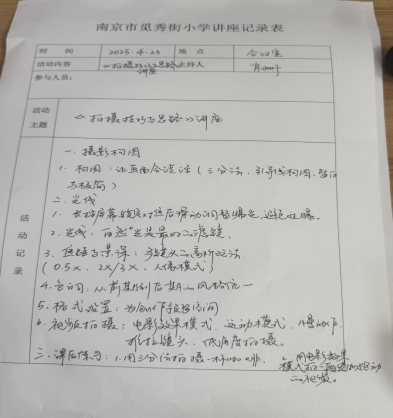 南京市觅秀街小学讲座记录表
时 间 2025.4.23 地 点 会议室
活动内容 《拍摄技巧与思路》讲座 主持人
参与人员：
活动主题 《拍摄技巧与思路》讲座
活动记录
一、摄影构图
1. 构图：让画面会说话（三分法、引导线构图、留白与极简）
二、光线
1. 长按屏幕锁定对焦后滑动调整曝光，避免过曝。
2. 光线：自然光是最好的滤镜
3. 焦段与景深：多镜头的高阶玩法
（0.5x、2X/3X、人像模式）
4. 色调：从前期到后期的风格统一
5. 格式设置：为创作预留空间
6. 视频拍摄：电影效果模式、运动模式、慢动作
推拉镜头、低角度拍摄。
三、课后练习：1. 用三分法拍摄一杯咖啡、2. 用电影效果
模式拍一段
视频。